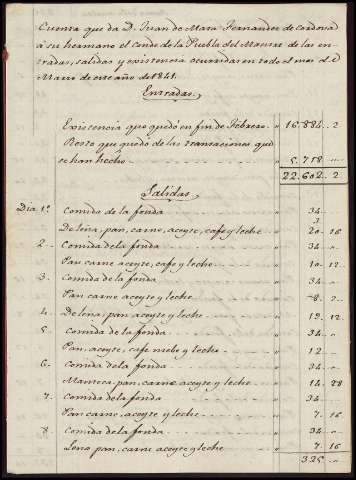 Cuenta que da D. Juan de Mata Fernandez de Cordova
á su hermano el Conde de la Puebla del Maestre de las en-
tradas, salidas y existencia ocurridas en todo el mes de
Marzo de este año de 1841.
Entradas.
Existencia que quedó en fin de Febrero. 16.884,, 2
Resto que quedó de las transaciones que
se han hecho 5.718 ,,
22.602,, 2
Salidas
Dia 1º Comida de la fonda ,, 34 ,,
De leña, pan, carne, aceyte, cafe y leche ,, 20 ,, 16
2 Comida de la fonda ,, 34 ,,
Pan carne aceyte, cafe y leche ,, 10 ,, 12
3 Comida de la fonda ,, 34 ,,
Pan carne aceyte y leche ,, 8 ,,
4 De leña, pan aceyte y leche ,, 12
5 Comida de la fonda ,, 34 ,,
Pan, aceyte, cafe y leche ,, 12 ,,
6 Comida de la fonda ,, 34 ,,
Manteca, pan, carne aceyte y leche ,, 14 ,, 28
7 Comida de la fonda ,, 34 ,,
Pan carne, aceyte y leche ,, 7 ,, 16
8 Comida de la fonda ,, 34 ,,
Leña pan, carne aceyte y leche ,, 7 ,, 16
325 ,,